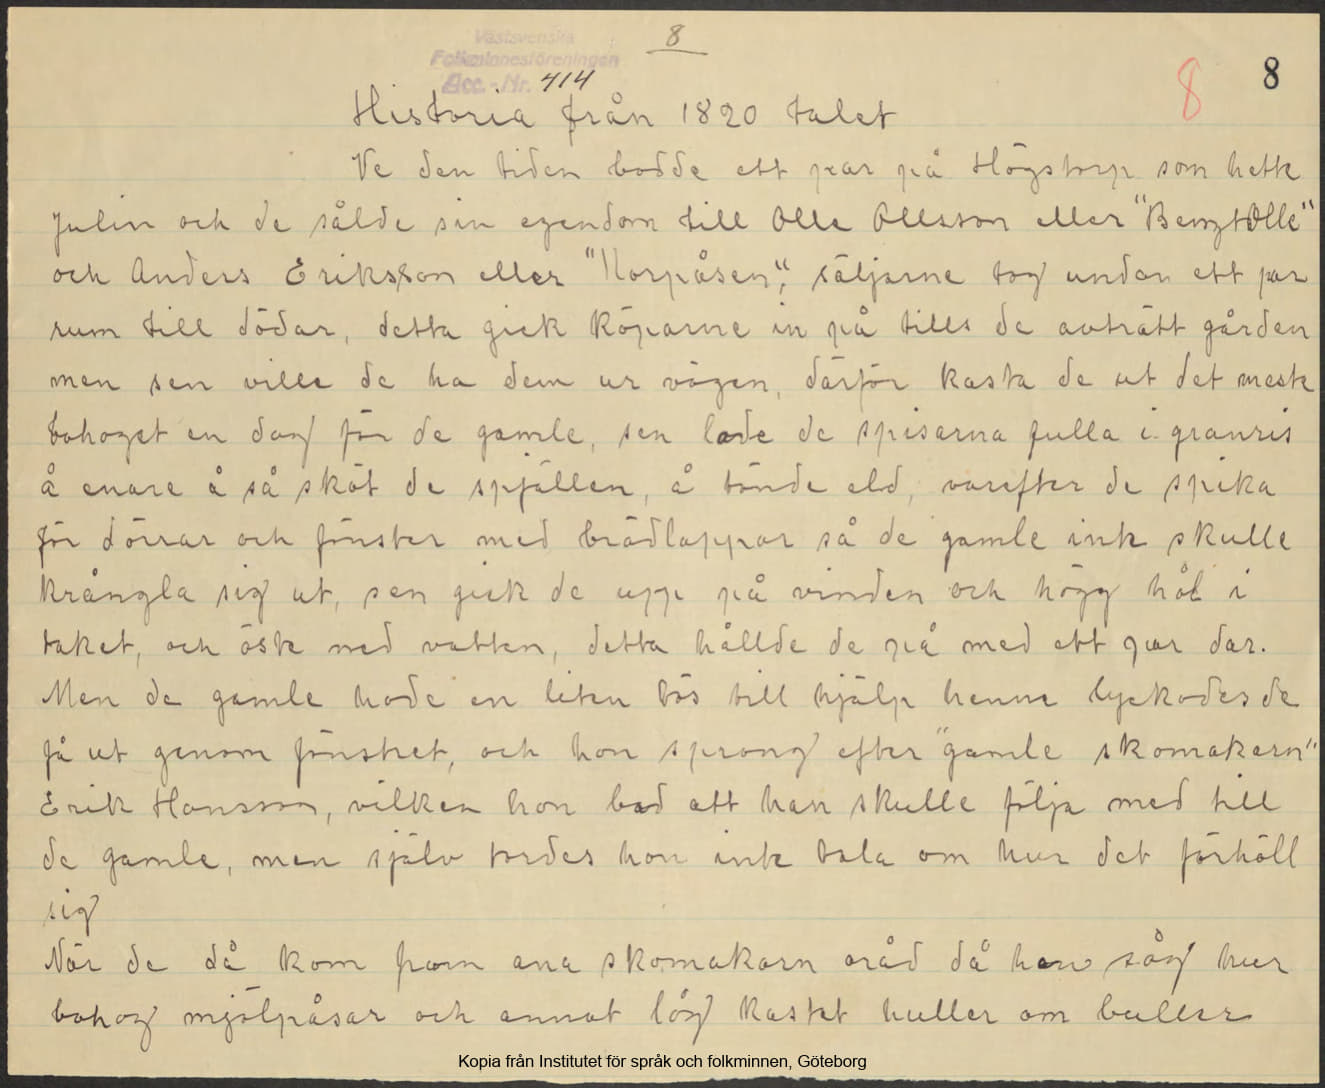 8
Västsvenska
Folkminnesföreningen
Acc.-Nr. 414
8
8
Historia från 1820 talet
Ve den tiden bodde ett par på Högstorp som hette
Julin och de sålde sin egendom till Olle Ollsson eller "BengtOlle"
och Anders Eriksson eller "Norpåsen", säljarne tog undan ett par
rum till dödar, detta gick köparne in på tills de avträtt gården
men sen ville de ha dem ur vägen, därför kasta de ut det meste
bohoget en dag för de gamle, sen lade de spisarna fulla i granris
å enare å så sköt de spjällen, å tände eld, varefter de spika
för dörrar och fönster med brädlappar så de gamle inte skulle
krångla sig ut, sen gick de upp på vinden och högg hål i
taket, och öste ned vatten, detta hållde de på med ett par dar.
Men de gamle hade en liten tös till hjälp henne lyckades de
få ut genom fönstret, och hon sprang efter "gamle skomakarn"
Erik Hansson, vilken hon bad att han skulle följa med till
de gamle, men själv tordes hon inte tala om hur det förhöll
sig
När de då kom fram ana skomakarn oråd då han såg hur
bohog mjölpåsar och annat låg kastat huller om buller
Kopia från Institutet för språk och folkminnen, Göteborg